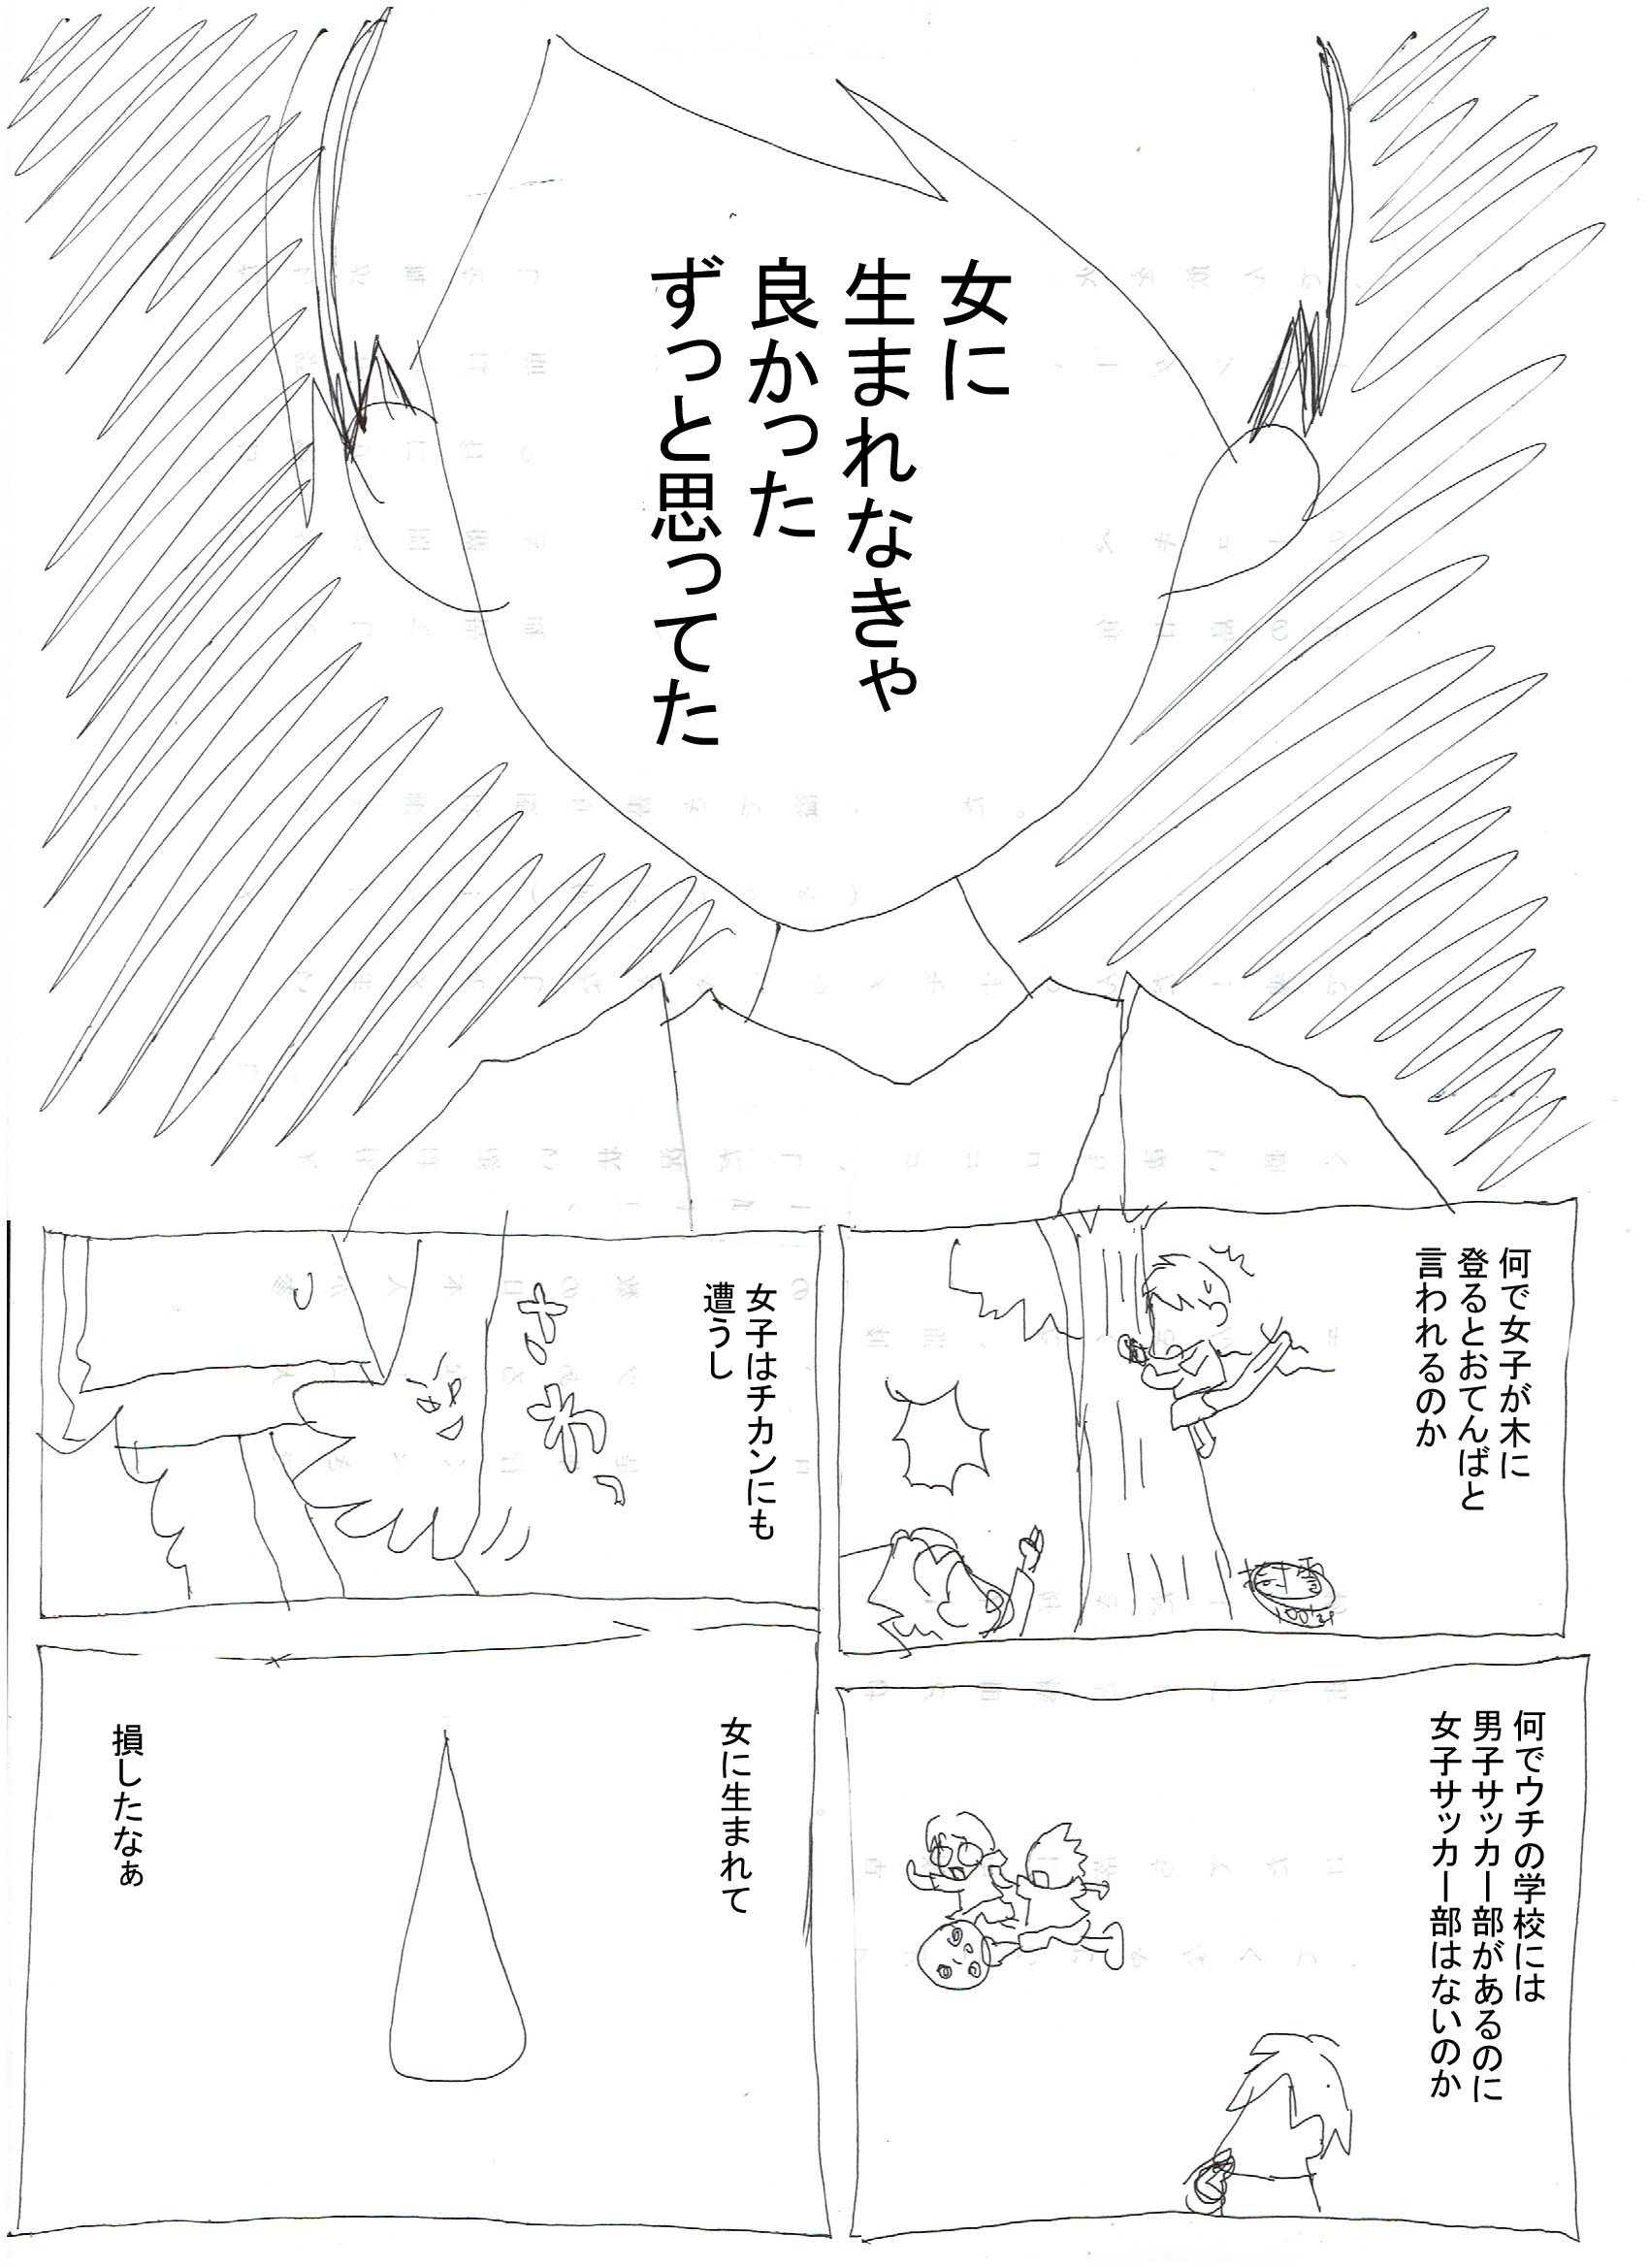 女に
生まれなきゃ
良かった
ずっと思ってた
何で女子が木に
登るとおてんばと
言われるのか
女子はチカンにも
遭うし
さ
わっ
何でウチの学校には
男子サッカー部があるのに
女子サッカー部はないのか
女に生まれて
損したなぁ